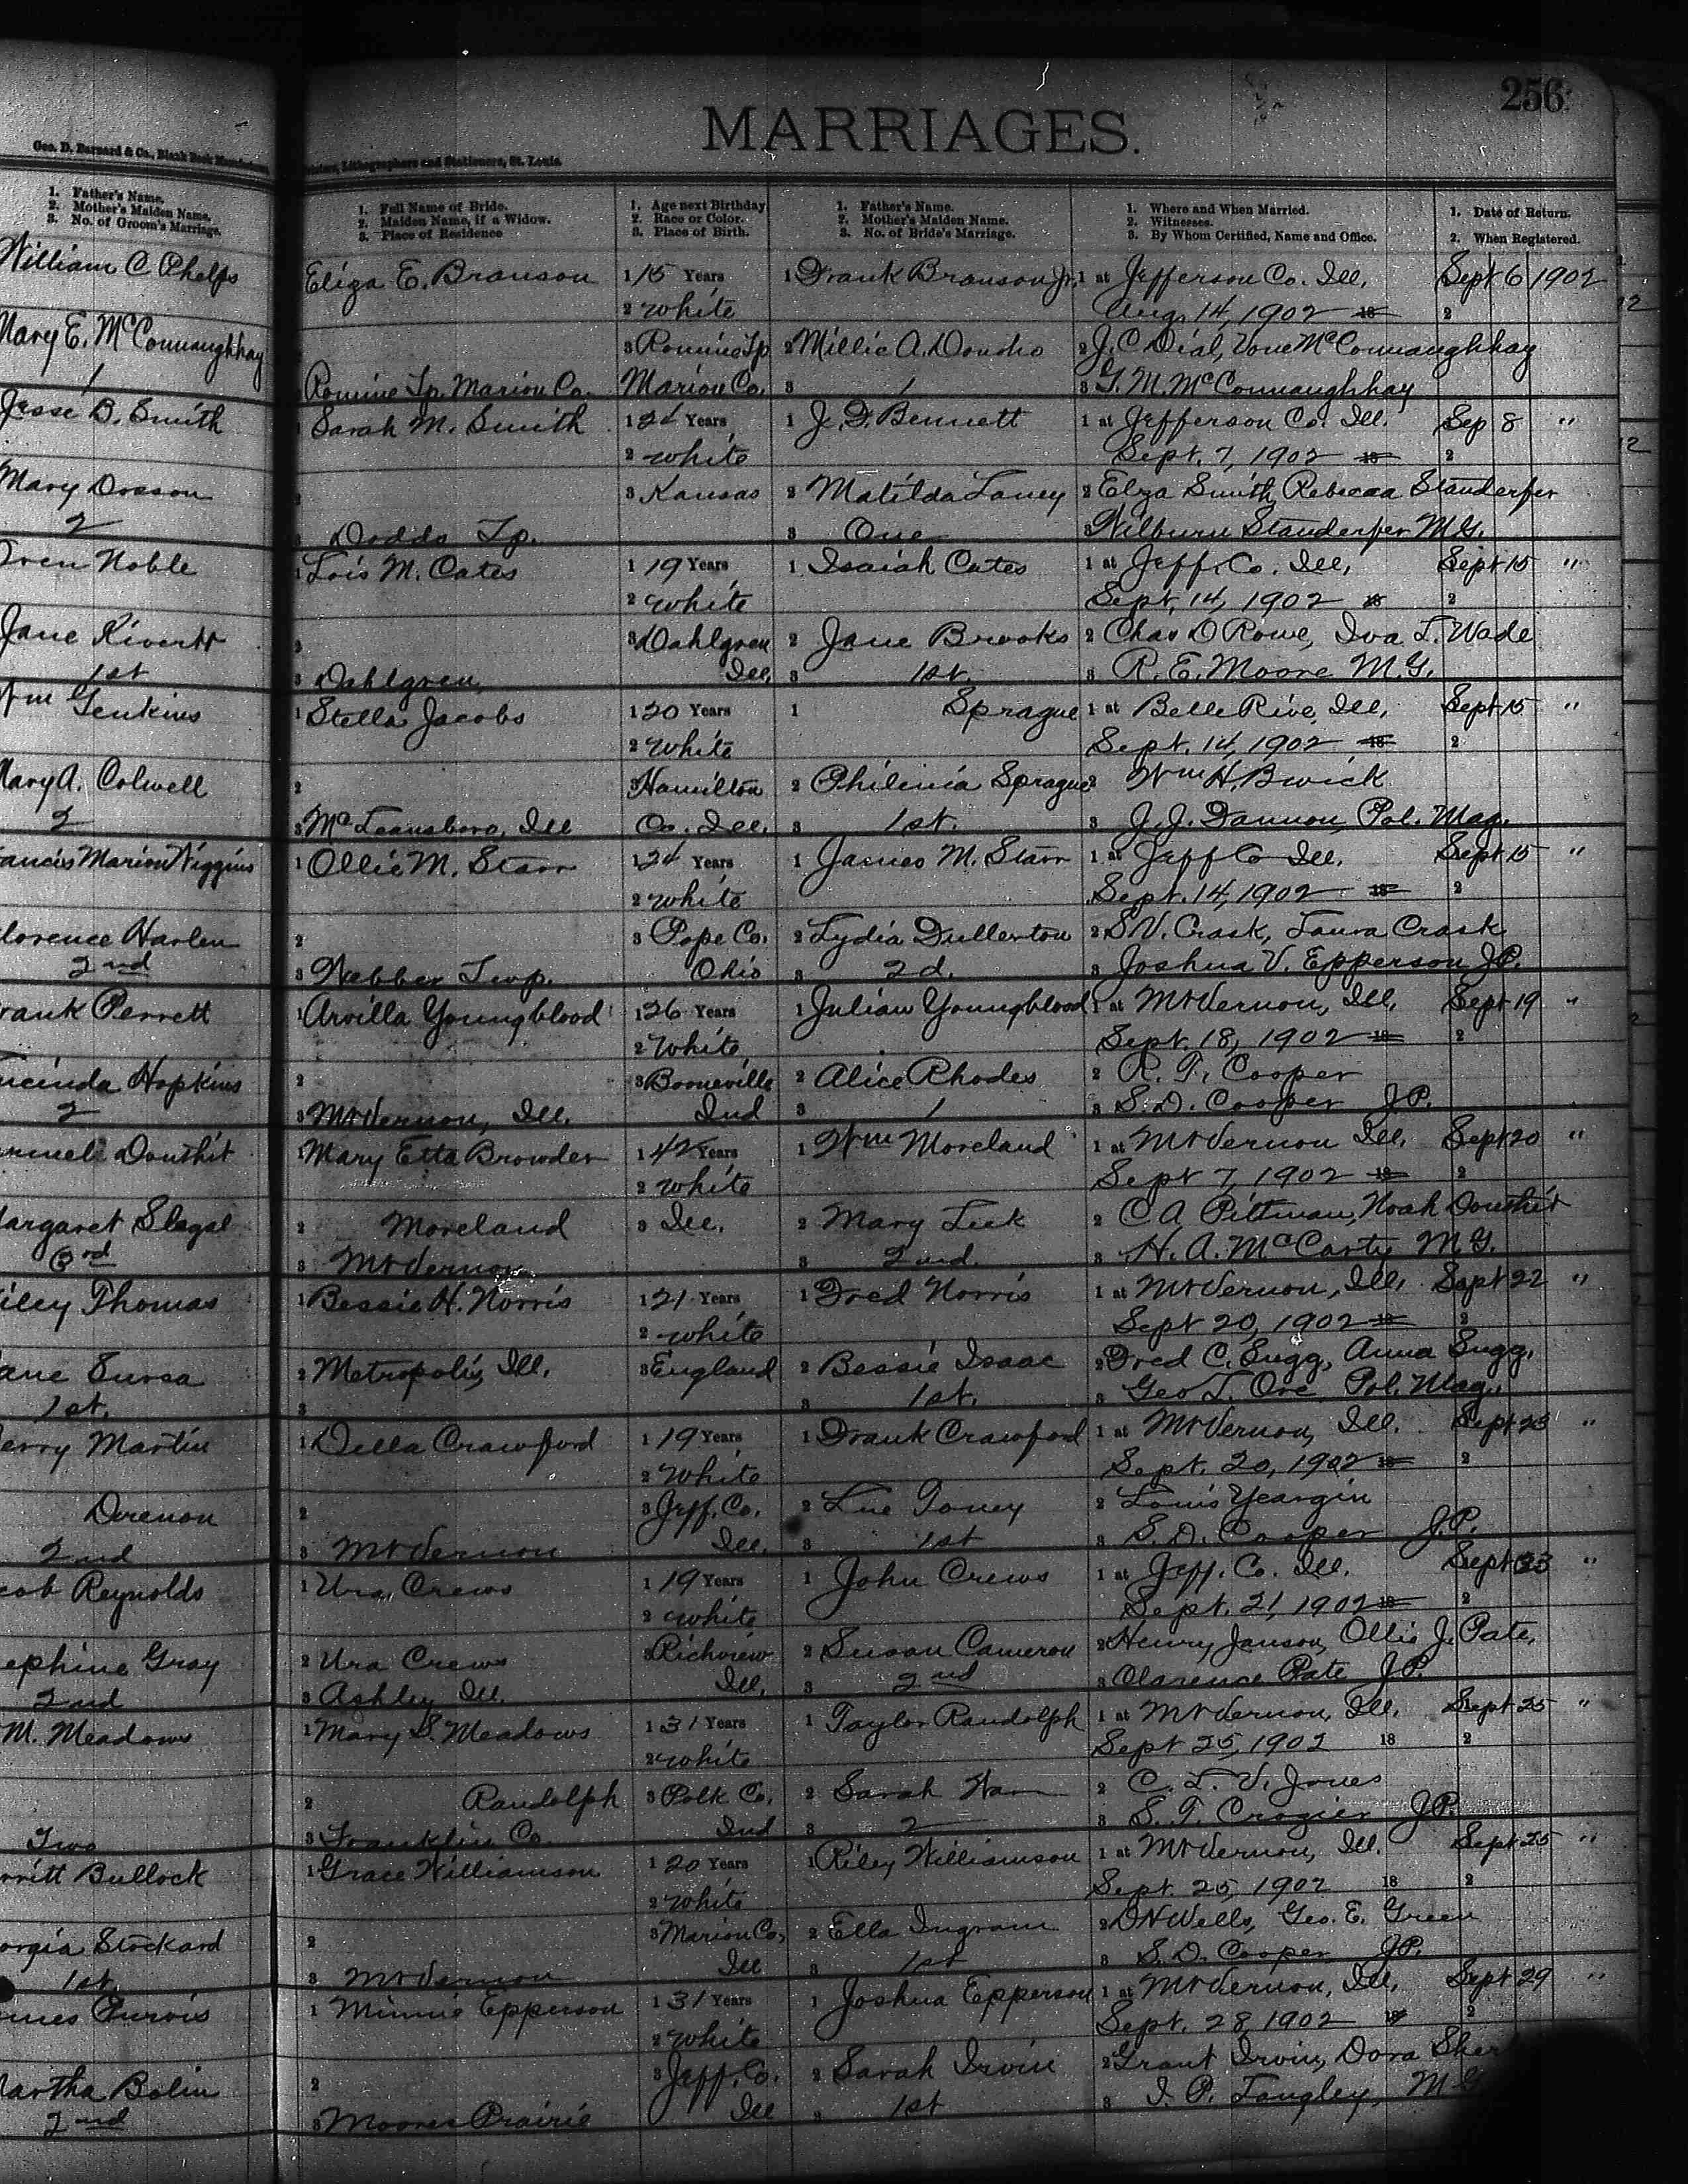 256
MARRIAGES.
Geo. D. Barnard & Co., Blank Book Manufacturers,
Printers, Lithographers and Stationers, St. Louis.
1. Father's Name.
2. Mother's Maiden Name.
3. No. of Groom's Marriage.
1. Full Name of Bride.
2. Maiden Name, if a Widow.
3. Place of Residence
1. Age next Birthday
2. Race or Color.
3. Place of Birth.
1. Father's Name.
2. Mother's Maiden Name.
3. No. of Bride's Marriage.
1. Where and When Married.
2. Witnesses.
3. By Whom Certified, Name and Office.
1. Date of Return.
2. When Registered.
William C Phelps Eliza E. Branson 1 15 Years 1 Frank Branson Jr. 1 at Jefferson Co. Ill. Sept 6 1902
2 White Aug. 14, 1902 18 2
Mary E. McConnaughhay 3 Romine Tp 2 Millie A. Donoho 2 J. C Dial, Vone McConnaughhay
1 Romine Tp. Marion Co. Marion Co. 3 1 3 T. M. McConnaughhay
Jesse B. Smith 1 Sarah M. Smith 1 24 Years 1 J. F. Bennett 1 at Jefferson Co. Ill. Sep 8 "
2 White Sept. 7, 1902 18 2
Mary Dodson 2 3 Kansas 2 Matilda Laney 2 Elza Smith, Rebecca Standerfer
2 3 Dodds Tp. 3 One 3 Wilburn Standerfer M.G.
Oren Noble 1 Lois M. Cates 1 19 Years 1 Isaiah Cates 1 at Jeff. Co. Ill. Sept 15 "
2 White Sept. 14, 1902 18 2
Jane 2 3 Dahlgren 2 Jane Brooks 2 Chas D Rowe, Iva L. Wade
1st 3 Dahlgren, Ill. 3 1st. 3 R. E. Moore M.G.
Wm Jenkins 1 Stella Jacobs 1 20 Years 1 Sprague 1 at Belle Rive, Ill. Sept 15 "
2 White Sept. 14, 1902 18 2
Mary A. Colwell 2 3 Hamilton 2 Philenia Sprague 2 Wm H. Bwick
2 3 McLeansboro, Ill Co. Ill. 3 1st. 3 J. J. Dannon, Pol. Mag.
ancis Marion Wiggins 1 Ollie M. Starr 1 24 Years 1 James M. Starr 1 at Jeff Co Ill. Sept 15 "
2 White Sept. 14, 1902 18 2
lorence Harlen 2 3 Pope Co. 2 Lydia Fullerton 2 S V. Crask, Laura Crask
2nd 3 Webber Twp. Ohio 3 2d. 3 Joshua V. Epperson J.P.
rank Perrett 1 Arvilla Youngblood 1 26 Years 1 Julian Youngblood 1 at Mt Vernon, Ill. Sept 19 "
2 White Sept. 18, 1902 18 2
ucinda Hopkins 2 3 Booneville 2 Alice Rhodes 2 R. T. Cooper
2 3 Mt Vernon, Ill. Ind 3 1 3 S. D. Cooper J.P.
Douthit 1 Mary Etta Browder 1 42 Years 1 Wm Moreland 1 at Mt Vernon Ill. Sept 20 "
2 White Sept 7, 1902 18 2
argaret Slagal 2 Moreland 3 Ill. 2 Mary Tuck 2 C. A Pittman, Noah Douthit
3rd 3 Mt Vernon 3 2nd. 3 H. A. McCarty M.G.
iley Thomas 1 Bessie H. Norris 1 21 Years 1 Fred Norris 1 at Mt Vernon, Ill. Sept 22 "
2 White Sept 20, 1902 18 2
ane 2 Metropolis, Ill. 3 England 2 Bessie Isaac 2 Fred C. Sugg, Anna Sugg.
1st. 3 3 1st. 3 Geo T. Ore Pol. Mag.
erry Martin 1 Della Crawford 1 19 Years 1 Frank Crawford 1 at Mt Vernon, Ill. Sept 23 "
2 White Sept. 20, 1902 18 2
Drenon 2 3 Jeff. Co. 2 Lue Toney 2 Louis Yeargin
2nd 3 Mt Vernon Ill. 3 1st 3 S. D. Cooper J.P.
cob Reynolds 1 Ura Crews 1 19 Years 1 John Crews 1 at Jeff. Co. Ill. Sept 23 "
2 White Sept. 21, 1902 18 2
ephine Gray 2 Ura Crews 3 Richview 2 Susan Cameron 2 Henry Janson, Ollie J. Pate,
2nd 3 Ashley Ill. Ill. 3 2nd 3 Clarence Pate J.P.
M. Meadows 1 Mary S. Meadows 1 31 Years 1 Taylor Randolph 1 at Mt Vernon, Ill. Sept 25 "
2 White Sept 25, 1902 18 2
2 Randolph 3 Polk Co. 2 Sarah 2 C. L. V. Jones
Two 3 Franklin Co. Ind 3 2 3 S. T. Crozier J.P.
rritt Bullock 1 Grace Williamson 1 20 Years 1 Riley Williamson 1 at Mt Vernon, Ill. Sept 25 "
2 White Sept. 25, 1902 18 2
orgia Stockard 2 3 Marion Co. 2 Ella Ingram 2 D N Wells, Geo. E. Green
1st. 3 Mt Vernon Ill 3 1st 3 S. D. Cooper J.P.
mes Purvis 1 Minnie Epperson 1 31 Years 1 Joshua Epperson 1 at Mt Vernon, Ill. Sept 29 "
2 White Sept. 28, 1902 18 2
artha Bolin 2 3 Jeff. Co. 2 Sarah Irvin 2 Grant Irvin, Dora Sher
2nd 3 Moores Prairie Ill 3 1st 3 I. P. Langley, M G